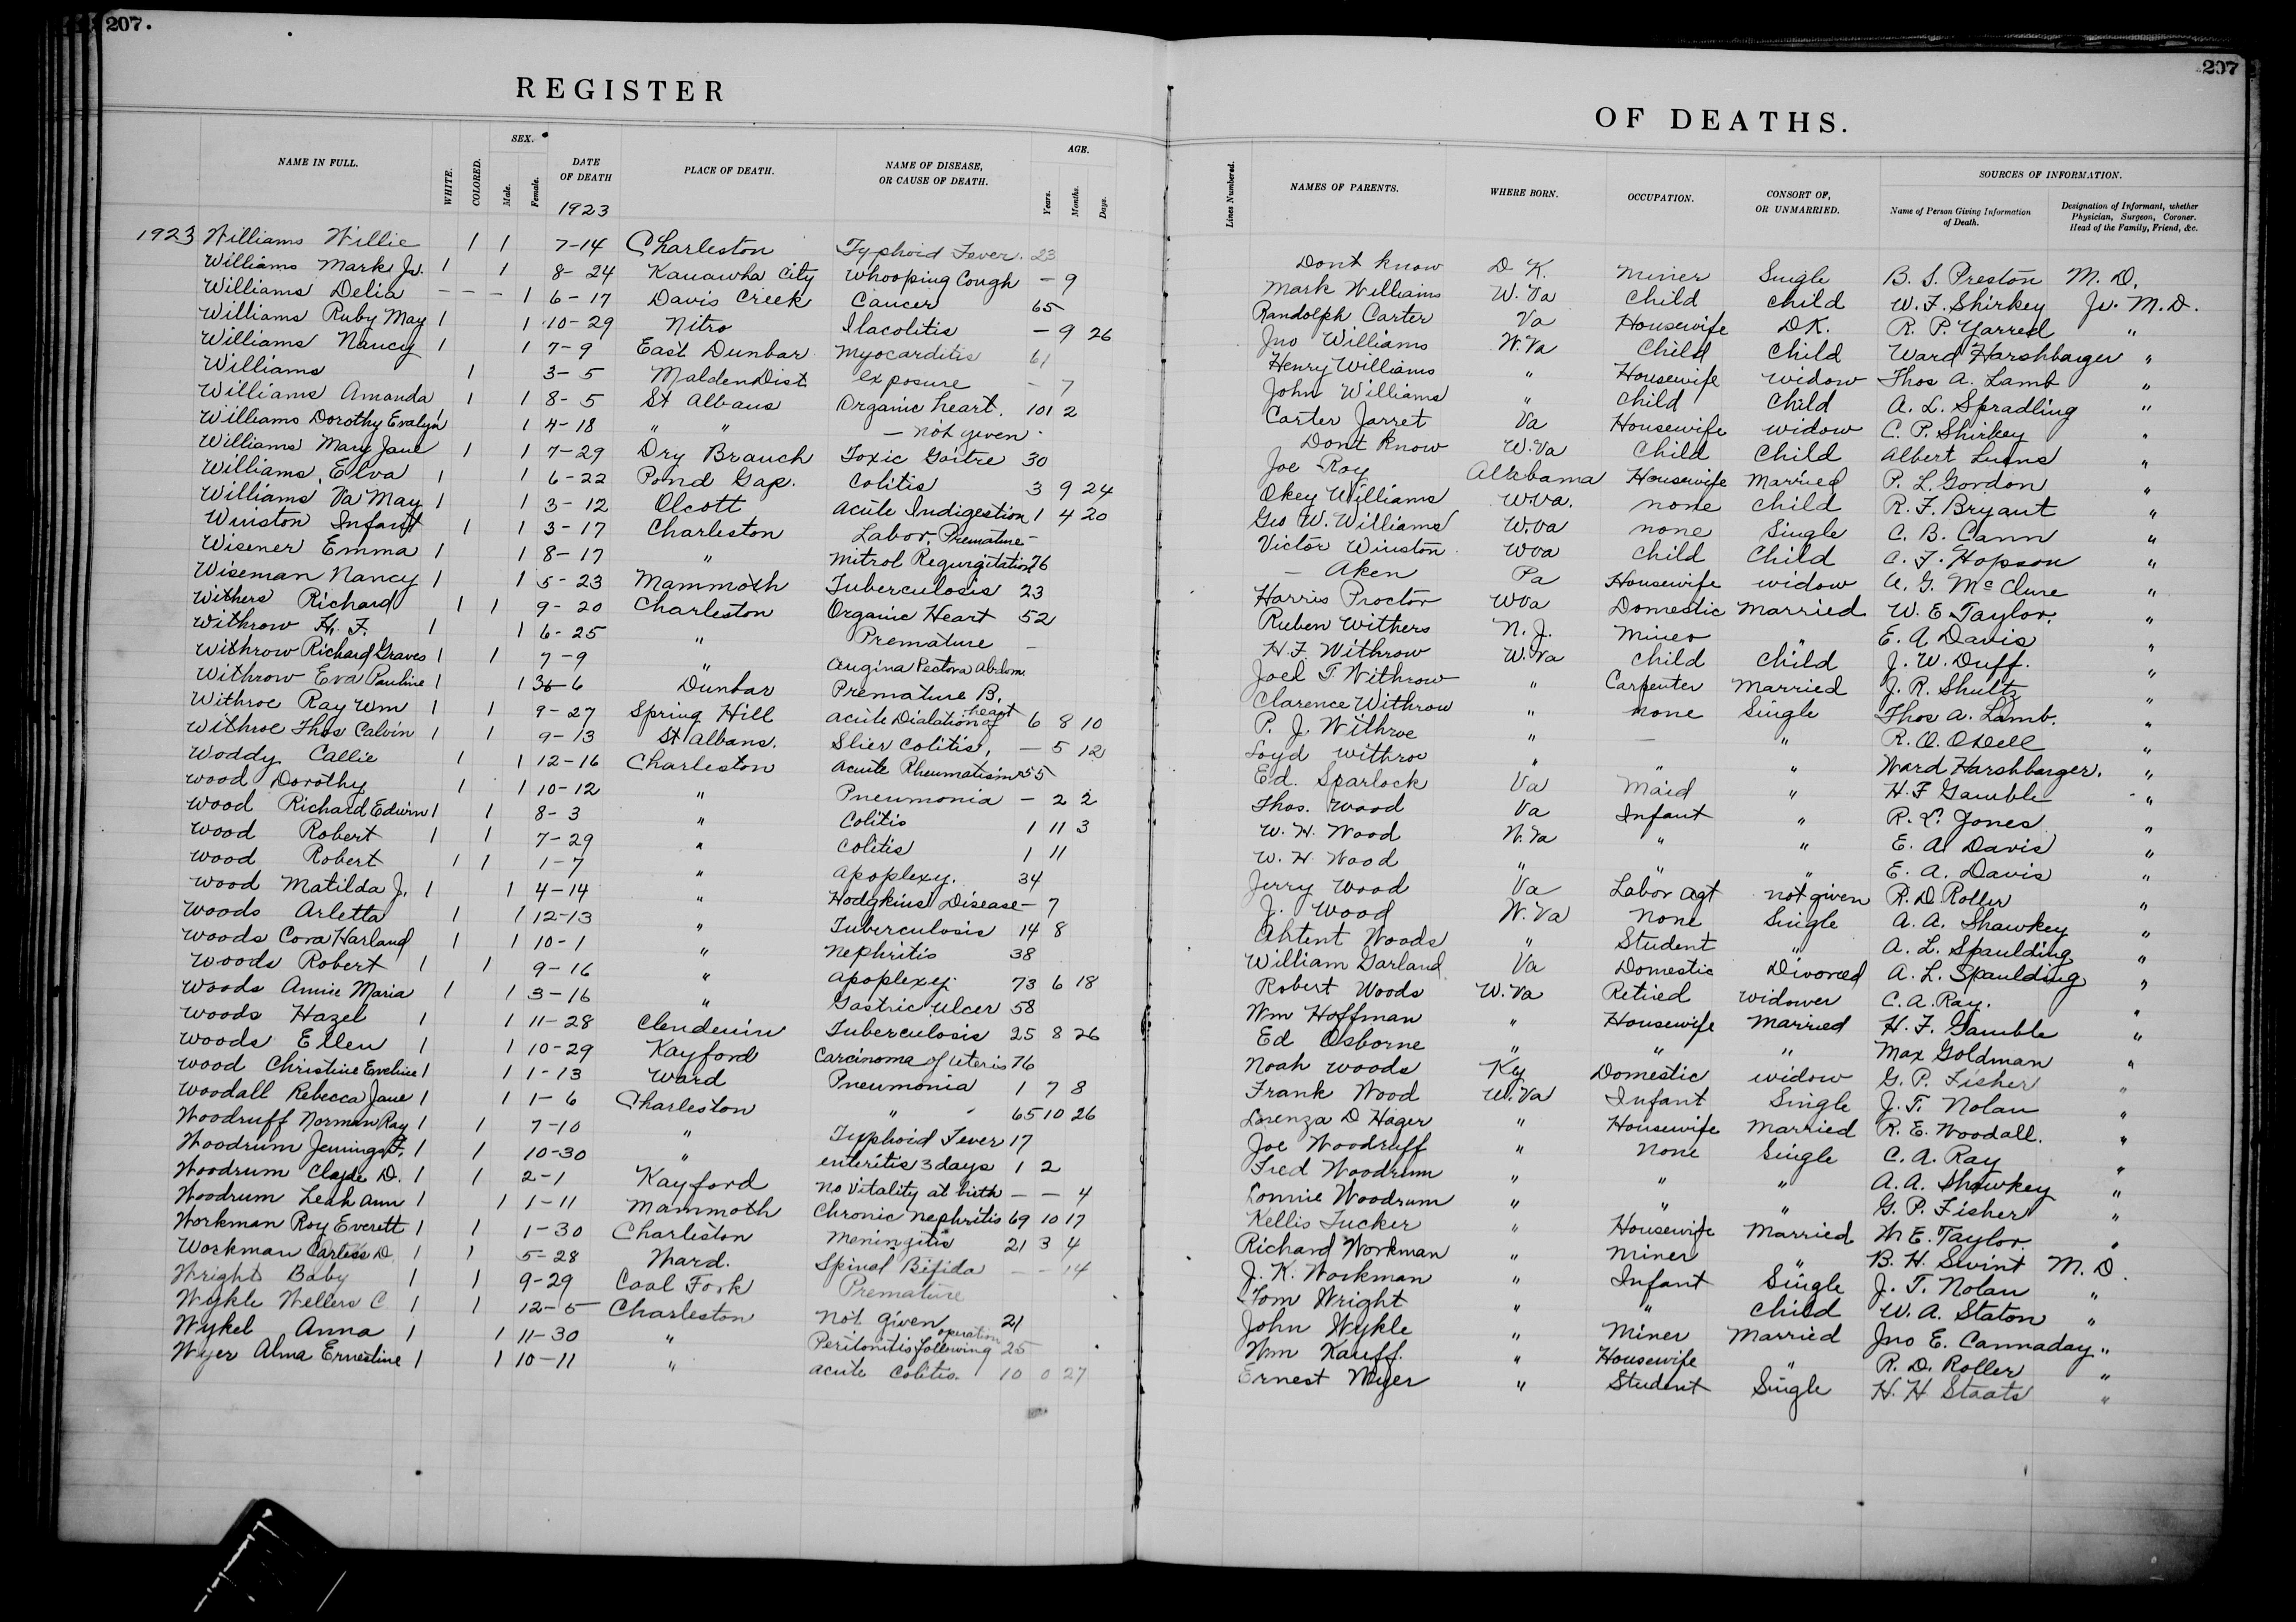 207.
207
REGISTER
OF DEATHS.
NAME IN FULL. WHITE. COLORED. SEX. Male. Female. DATE OF DEATH 1923 PLACE OF DEATH. NAME OF DISEASE, OR CAUSE OF DEATH. AGE. Years. Months. Days.
Lines Numbered. NAMES OF PARENTS. WHERE BORN. OCCUPATION. CONSORT OF, OR UNMARRIED. SOURCES OF INFORMATION. Name of Person Giving Information of Death. Designation of Informant, whether Physician, Surgeon, Coroner. Head of the Family, Friend, &c.
1923 Williams Willie 1 1 7-14 Charleston Typhoid Fever. 23
Williams Mark Jr. 1 1 8-24 Kanawha City Whooping Cough - 9
Williams Delia - - - 1 6-17 Davis Creek Cancer 65
Williams Ruby May 1 1 10-29 Nitro Ilacolitis - 9 26
Williams Nancy 1 1 7-9 East Dunbar Myocarditis 61
Williams 1 3-5 Malden Dist exposure - 7
Williams Amanda 1 1 8-5 St Albans Organic heart. 101 2
Williams Dorothy Evalyn 1 1 4-18 " " - not given -
Williams Mary Jane 1 1 7-29 Dry Branch Toxic Goitre 30
Williams, Elva 1 1 6-22 Pond Gap. Colitis 3 9 24
Williams Va May 1 1 3-12 Olcott acute Indigestion 1 4 20
Winston Infant 1 1 3-17 Charleston Labor, Premature -
Wisener Emma 1 1 8-17 " Mitrol Regurgitation 76
Wiseman Nancy 1 1 5-23 Mammoth Tuberculosis 23
Withers Richard 1 1 9-20 Charleston Organic Heart 52
Withrow H. F. 1 1 6-25 " Premature -
Withrow Richard Graves 1 1 7-9 " Angina Pectora Abdom.
Withrow Eva Pauline 1 1 6 Dunbar Premature B.
Withroe Ray Wm 1 1 9-27 Spring Hill acute Dialation of heart 6 8 10
Withroe Thos Calvin 1 1 9-13 St Albans. colitis. - 5 12
Woddy Callie 1 1 12-16 Charleston acute Rheumatism 55
Wood Dorothy 1 1 10-12 " Pneumonia - 2 2
Wood Richard Edwin 1 1 8-3 " Colitis 1 11 3
Wood Robert 1 1 7-29 " Colitis 1 11
Wood Robert 1 1 1-7 " apoplexy. 34
Wood Matilda J. 1 1 4-14 " Hodgkins Disease - 7
Woods Arletta 1 1 12-13 " Tuberculosis 14 8
Woods Cora Harland 1 1 10-1 " Nephritis 38
Woods Robert 1 1 9-16 " apoplexy. 73 6 18
Woods Annie Maria 1 1 3-16 " Gastric ulcer 58
Woods Hazel 1 1 11-28 Clendenin Tuberculosis 25 8 26
Woods Ellen 1 1 10-29 Kayford Carcinoma of Uteris 76
Wood Christine Eveline 1 1 1-13 Ward Pneumonia 1 7 8
Woodall Rebecca Jane 1 1 1-6 Charleston " 65 10 26
Woodruff Norman Ray 1 1 7-10 " Typhoid Fever 17
Woodrum Jennings F. 1 1 10-30 " enteritis 3 days 1 2
Woodrum Clyde D. 1 1 2-1 Kayford no vitality at birth - - 4
Woodrum Leah Ann 1 1 1-11 Mammoth Chronic nephritis 69 10 17
Workman Roy Everett 1 1 1-30 Charleston Meningitis 21 3 4
Workman Carless D. 1 1 5-28 Ward. Spinal Bifida - - 14
Wright Baby 1 1 9-29 Coal Fork Premature
Wykle Wellers C 1 1 12-5 Charleston not given 21
Wykel Anna 1 1 11-30 " Peritonitis following operation 25
Wyer Alma Ernestine 1 1 10-11 " acute colitis. 10 0 27
Dont know D. K. Miner Single B. S. Preston M. D.
Mark Williams W. Va Child Child W. F. Shirkey Jr. M. D.
Randolph Carter Va Housewife D K. R. P. Yarred "
Jno Williams W. Va Child Child Ward Harshbarger "
Henry Williams " Housewife widow Thos A. Lamb "
John Williams " Child Child A. L. Spradling "
Carter Jarret Va Housewife widow C. P. Shirkey "
Dont know W. Va Child Child Albert "
Joe Roy Allabama Housewife Married P. L. Gordon "
Okey Williams W Va. none child R. F. Bryant "
Geo W. Williams W. Va none Single C. B. Cann "
Victor Winston W Va child Child A. J. Hopson "
- Aken Pa Housewife widow A. G. McClure "
Harris Proctor W Va Domestic Married W. E. Taylor. "
Ruben Withers N. J. Miner " E. A. Davis "
H. F. Withrow W. Va child child J. W. Duff. "
Joel T. Withrow " Carpenter Married J. R. Shultz "
Clarence Withrow " none Single Thos A. Lamb. "
P. J. Withroe " - " R. O. ODell "
Loyd Withroe " " " Ward Harshbarger. "
Ed. Sparlock Va Maid " H. F Gamble "
Thos. Wood Va Infant " R. L. Jones "
W. H. Wood W. Va " " E. A. Davis "
W. H. Wood " " " E. A. Davis "
Jerry Wood Va Labor Agt not given R. D. Roller "
J. Wood W. Va None Single A. A. Shawkey "
Ahtent Woods " Student " A. L. Spaulding "
William Garland Va Domestic Divorced A. L. Spaulding "
Robert Woods W. Va Retired widower C. A. Ray. "
Wm Hoffman " Housewife Married H. F. Gamble "
Ed Osborne " " " Max Goldman "
Noah Woods Ky Domestic widow G. P. Fisher "
Frank Wood W. Va Infant Single J. T. Nolan "
Lorenza D Hager " Housewife Married R. E. Woodall. "
Joe Woodruff " None Single C. A. Ray "
Fred Woodrum " " " A. A. Shawkey "
Lonnie Woodrum " " " G. P. Fisher "
Kellis Tucker " Housewife Married W. E. Taylor. "
Richard Workman " Miner " B. H. Swint M. D.
J. K. Workman " Infant Single J. T. Nolan "
Tom Wright " " child W. A. Staton "
John Wykle " Miner Married Jno E. Cannaday "
Wm Kauff. " Housewife " R. D. Roller "
Ernest Wyer " Student Single H. H Staats "